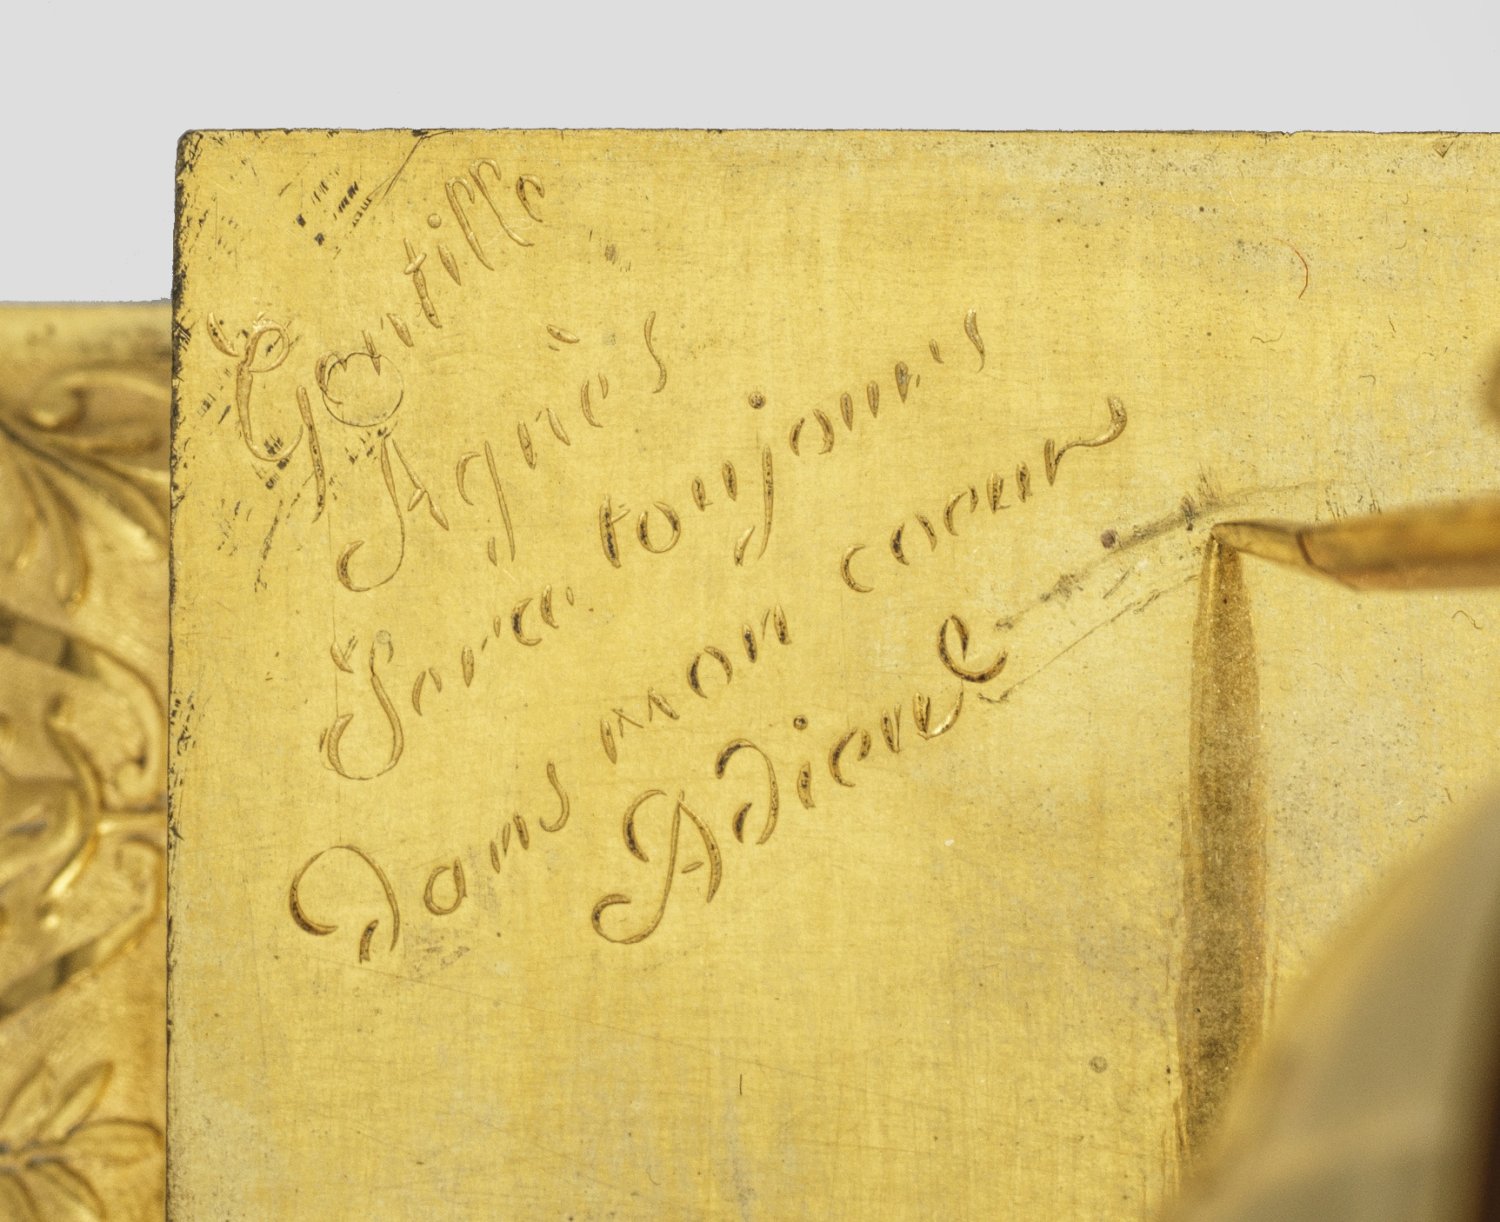 Gentille
Agnès
Sera toujours
Dans mon coeur
Adieu